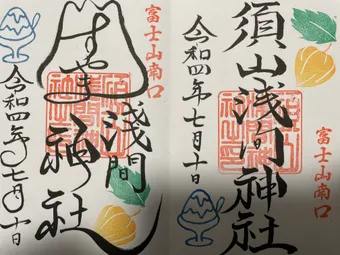 富士山南口
須山浅间神社
令和四年七月十日
富士山南口
すやま
淺間
神社
令和四年七月十日